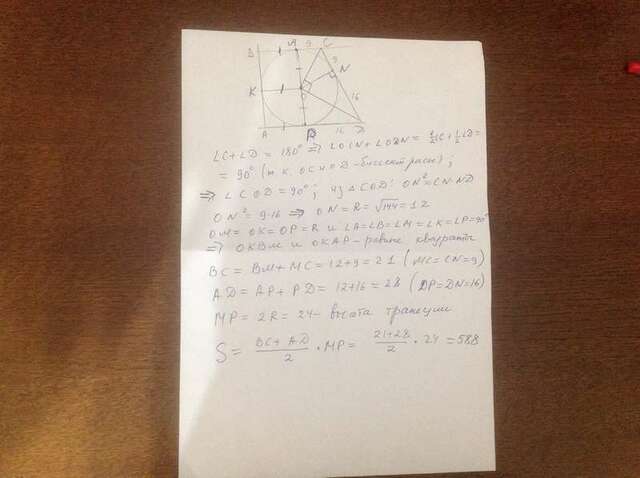 B M 9 C
9
N
K O
16
A P 16 D
∠C+∠D = 180° ⇒ ∠OCN+∠ODN = ½∠C+½∠D=
= 90° (т.к. OC и OD - биссектрисы);
⇒ ∠COD = 90°; из △COD: ON² = CN·ND
ON² = 9·16 ⇒ ON = R = √144 = 12
OM = OK = OP = R и ∠A=∠B=∠M=∠K=∠P=90°
⇒ OKBM и OKAP - равные квадраты
BC = BM + MC = 12+9 = 21 (MC = CN = 9)
AD = AP + PD = 12+16 = 28 (DP = DN = 16)
MP = 2R = 24 - высота трапеции
S = (BC + AD)/2 · MP = (21+28)/2 · 24 = 588